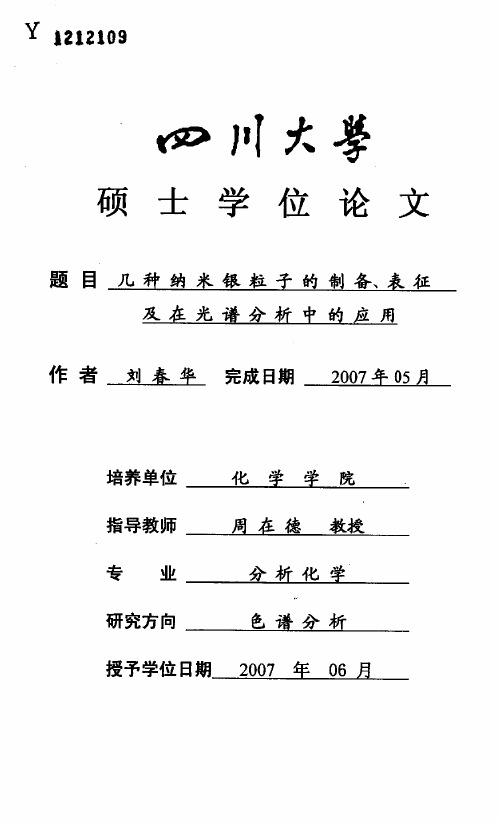 Y 1212109
四川大學
硕士学位论文
题目 几种纳米银粒子的制备、表征
及在光谱分析中的应用
作者 刘春华 完成日期 2007年05月
培养单位 化学学院
指导教师 周在德 教授
专业 分析化学
研究方向 色谱分析
授予学位日期 2007 年 06 月